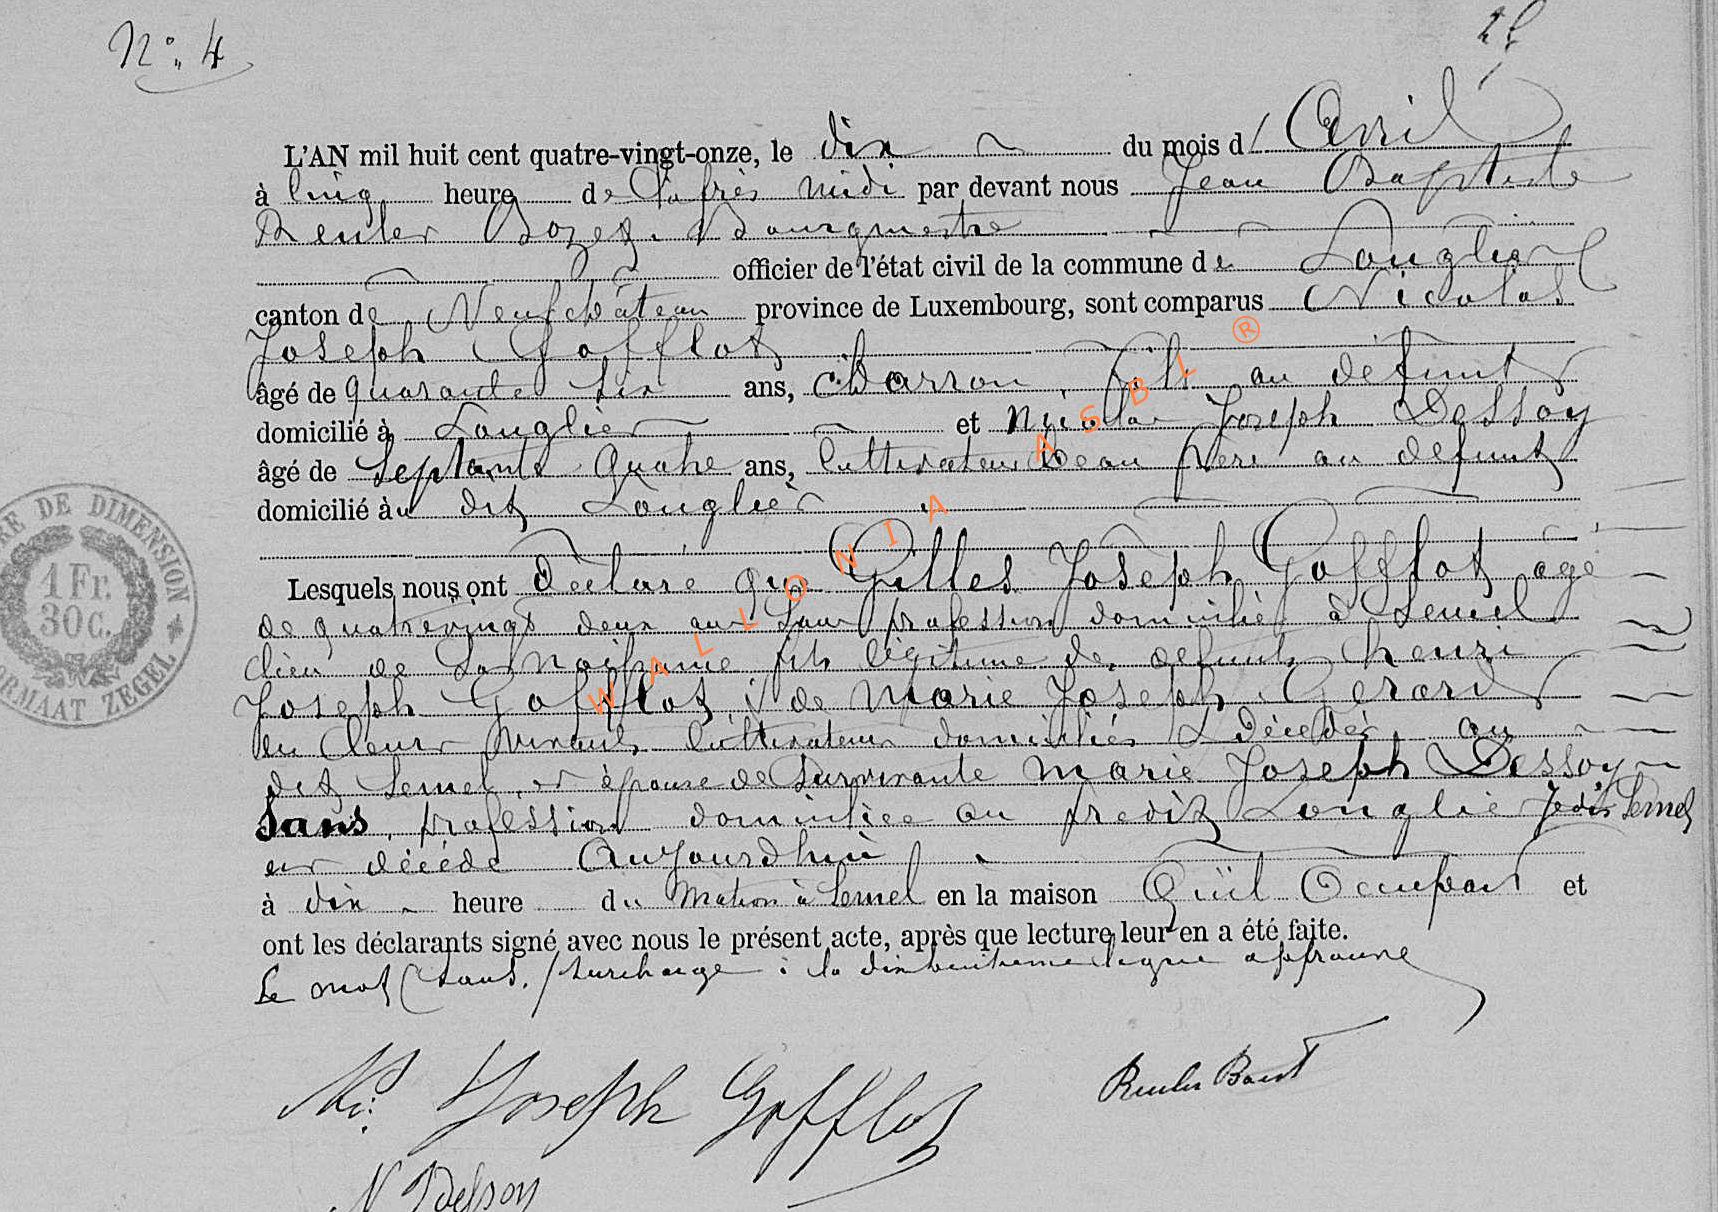 N° 4
L'AN mil huit cent quatre-vingt-onze, le dix du mois d' Avril
à Cinq heure de l'après midi par devant nous Jean Baptiste
Reuler Bozet Bourgmestre
officier de l'état civil de la commune de Longlier
canton de Neufchâteau province de Luxembourg, sont comparus Nicolas
Joseph Gofflot
âgé de quarante six ans, charron, fils au défunt
domicilié à Longlier et Nicolas Joseph Dessoy
âgé de septante quatre ans, Cultivateur Beau frère au défunt
domicilié au dit Longlier
Lesquels nous ont déclaré que Gilles Joseph Gofflot âgé
de quatrevingt deux ans sans profession domicilié à Semel
lieu de fils légitime de défunts henri
Joseph Gofflot & de Marie Joseph Gerard
en leur vivant cultivateurs domiciliés & décédés au
dit Semel, et époux de survivante Marie Joseph Dessoy
Sans profession domiciliée au predit Longlier Semel
est décédé Aujourdhui
à dix heure du Matin à Semel en la maison Qu'il Occupait et
ont les déclarants signé avec nous le présent acte, après que lecture leur en a été faite.
Le mot (sans) surchargé à la dixhuitieme ligne approuvé
Ni: Joseph Gofflot
Reuler Bozet
N J Dessoy
TIMBRE DE DIMENSION
1 Fr.
30 C.
FORMAAT ZEGEL
WALLONIA ASBL ®